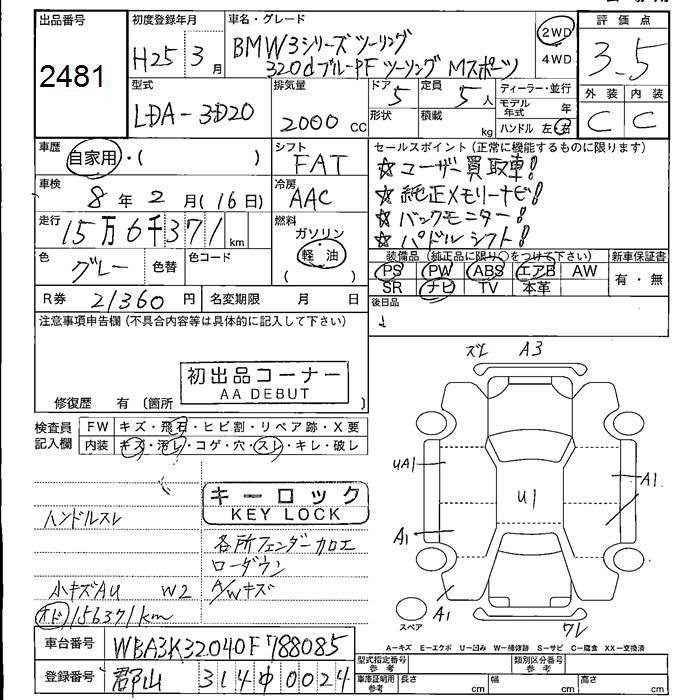 出品番号
2481
初度登録年月
H25 3 月
車名・グレード
BMW3シリーズ ツーリング
320dブルーPF ツーリング Mスポーツ
2WD
4WD
評価点
3.5
外装 内装
C C
型式
LDA-3D20
排気量
2000 cc
ドア
5
形状
定員
5 人
積載
kg
ディーラー・並行
モデル年式 年
ハンドル 左・右
車歴
自家用・( )
シフト
FAT
車検
8 年 2 月(16日)
冷房
AAC
走行
15万6千371 km
燃料
ガソリン
軽油
( )
色
グレー
色替
色コード
R券 21360 円
名変期限 月 日
セールスポイント(正常に機能するものに限ります)
☆ユーザー買取車!
☆純正メモリーナビ!
☆バックモニター!
☆パドルシフト!
装備品(純正品に限り○をつけて下さい)
PS PW ABS エアB AW
SR ナビ TV 本革
新車保証書
有・無
後日品
注意事項申告欄(不具合内容等は具体的に記入して下さい)
初出品コーナー
AA DEBUT
修復歴 有(箇所
検査員記入欄
FW キズ・飛石・ヒビ割・リペア跡・X要
内装 キズ・汚レ・コゲ・穴・スレ・キレ・破レ
キーロック
KEY LOCK
ハンドルスレ
各所フェンダーカロエ
ローダウン
小キズAU W2
A/Wキズ
オド156371km
車台番号 WBA3K32040F788085
登録番号 郡山 314 ゆ 0024
ズレ A3
UA1
A1
U1
A1
A1
ワレ
スペア
A-キズ E-エクボ U-凹み W-補修跡 S-サビ C-腐食 XX-交換済
型式指定番号
参考
類別区分番号
参考
車庫証明用
参考
長さ cm
幅 cm
高さ cm